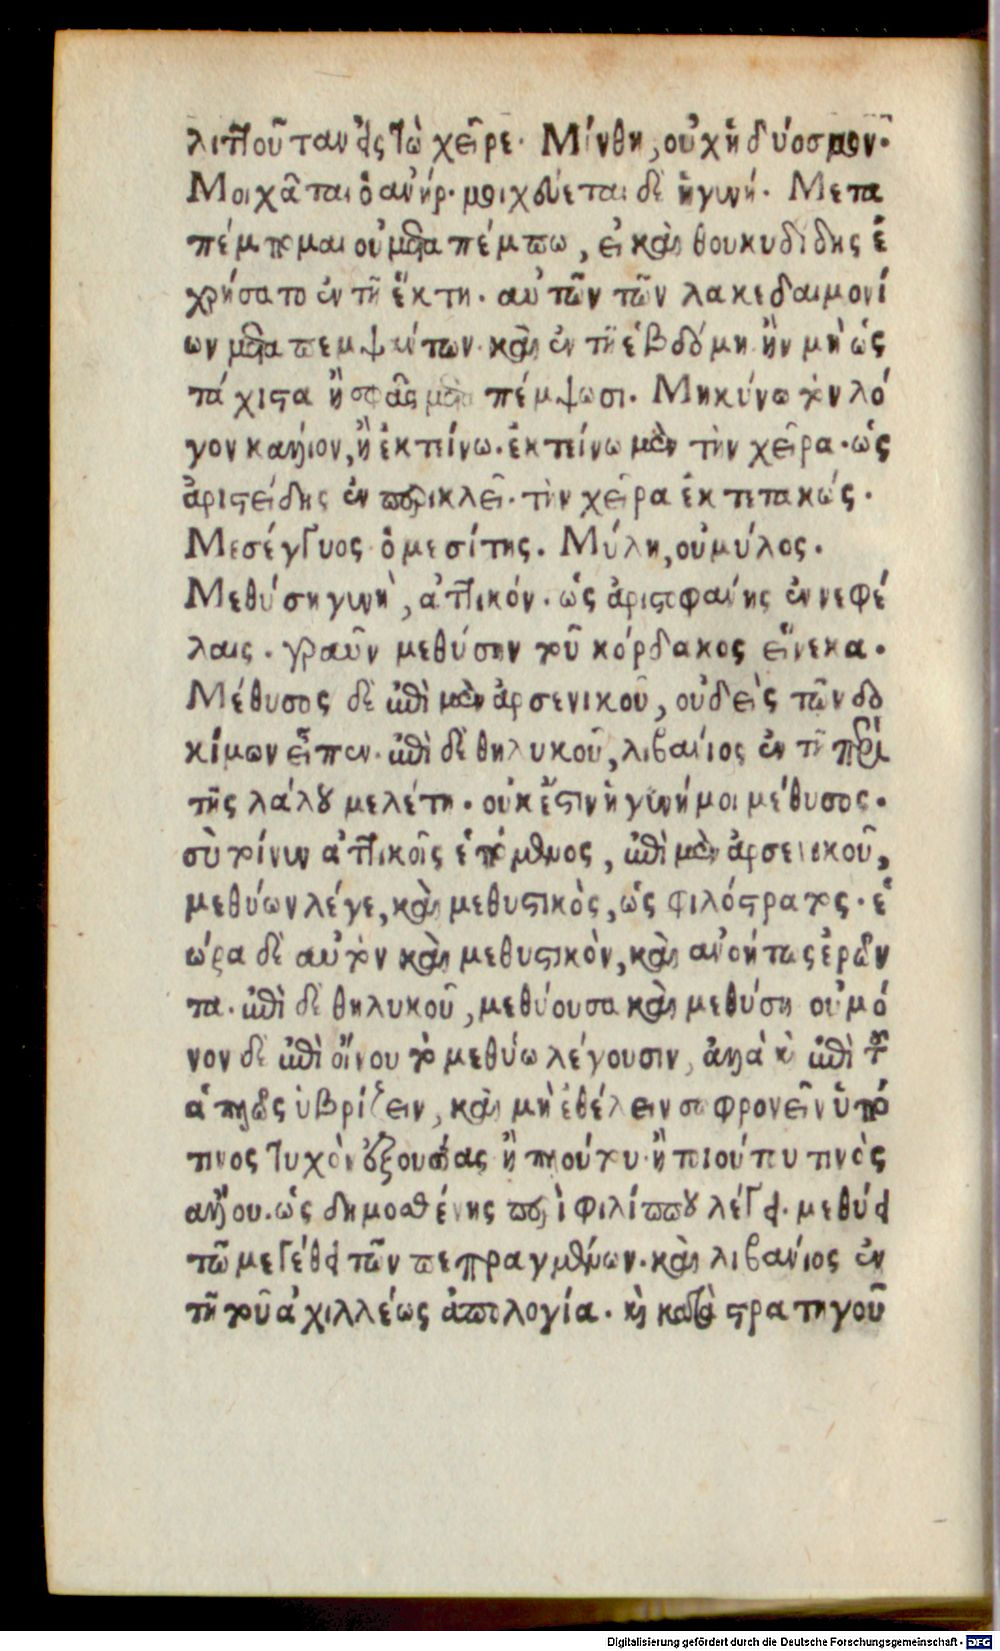 λιττοῦταν εἰς τὼ χεῖρε. Μίνθη, οὐχ ἡδύοσμον.
Μοιχᾶται ὁ ἀνήρ. μοιχεύεται δὲ ἡ γυνή. Μετα
πέμπομαι οὐ μεταπέμπω, εἰ καὶ θουκυδίδης ἐ
χρήσατο ἐν τῇ ἕκτη. αὐτῶν τῶν λακεδαιμονί
ων μεταπεμψάντων. καὶ ἐν τῇ ἑβδόμη ἢν μὴ ὡς
τάχιστα ἢ σφᾶς μετα πέμψωσι. Μηκύνω τὸν λό
γον κάλλιον, ἢ ἐκτείνω. ἐκτείνω μὲν τὴν χεῖρα. ὡς
ἀριστείδης ἐν περικλεῖ. τὴν χεῖρα ἐκτετακώς.
Μεσέγγυος ὁ μεσίτης. Μύλη, οὐ μύλος.
Μεθύση γυνὴ, ἀττικόν. ὡς ἀριστοφάνης ἐν νεφέ
λαις. γραῦν μεθύσην τοῦ κόρδακος εἵνεκα.
Μέθυσος δὲ ἐπὶ μὲν ἀρσενικοῦ, οὐδεὶς τῶν δο
κίμων εἶπεν. ἐπὶ δὲ θηλυκοῦ, λιβάνιος ἐν τῇ περὶ
τῆς λάλου μελέτη. οὐκ ἔστιν ἡ γυνή μοι μέθυσος.
σὺ τοίνυν ἀττικοῖς ἑπόμενος, ἐπὶ μὲν ἀρσενικοῦ,
μεθύων λέγε, καὶ μεθυστικὸς, ὡς φιλόστρατος. ἑ
ώρα δὲ αὐτὸν καὶ μεθυστικὸν, καὶ ἀνοήτως ἐρῶν
τα. ἐπὶ δὲ θηλυκοῦ, μεθύουσα καὶ μεθύση οὐ μό
νον δὲ ἐπὶ οἴνου τὸ μεθύω λέγουσιν, ἀλλὰ καὶ ἐπὶ τοῦ
ἁπλῶς ὑβρίζειν, καὶ μὴ ἐθέλειν σωφρονεῖν ὑπό
τινος τυχὸν ἐξουσίας ἢ πλούτου. ἢ τοιούτου τινὸς
ἄλλου. ὡς δημοσθένης περὶ φιλίππου λέγει. μεθύει
τῷ μεγέθει τῶν πεπραγμένων. καὶ λιβάνιος ἐν
τῇ τοῦ ἀχιλλέως ἀπολογία. καὶ κατὰ στρατηγοῦ
Digitalisierung gefördert durch die Deutsche Forschungsgemeinschaft - DFG